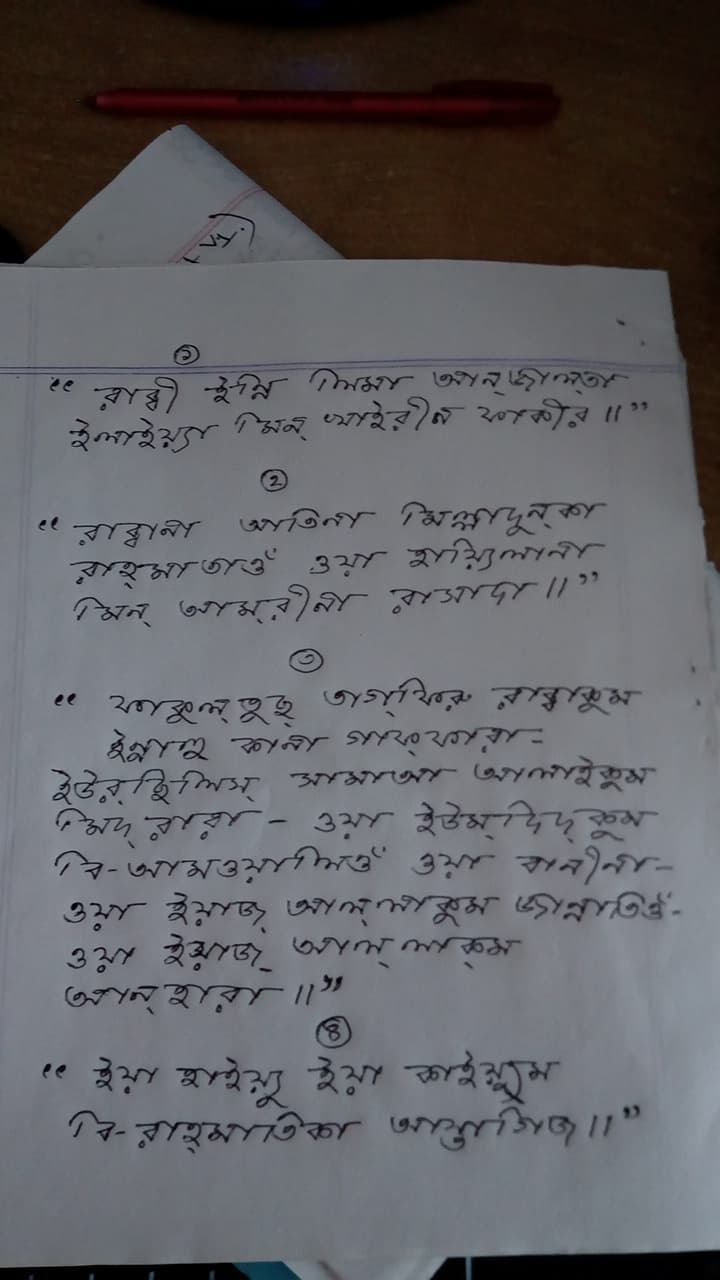 ১
“ রাব্বী ইন্নি লিমা আন্‌জাল্‌তা
ইলাইয়্যা মিন্ খাইরীন ফাকীর॥”
২
“ রাব্বানা আতিনা মিল্লাদুন্‌কা
রাহ্‌মাতাওঁ ওয়া হায়্যিলানা
মিন্ আম্‌রীনা রাসাদা॥”
৩
“ ফাকুল্‌তুছ্ তাগ্‌ফিরু রাব্বাকুম
ইন্নাহু কানা গাফ্‌ফারা-
ইউর্‌ছিলিস্ সামাআ আলাইকুম
মিদ্‌রারা - ওয়া ইউম্‌দিদ্‌কুম
বি-আমওয়ালিওঁ ওয়া বানীনা-
ওয়া ইয়াজ্ আল্‌লাকুম জান্নাতিওঁ-
ওয়া ইয়াজ্ আল্‌লাকুম
আন্‌হারা॥”
৪
“ ইয়া হাইয়্যু ইয়া কাইয়্যুম
বি-রাহ্‌মাতিকা আস্তাগিজ॥”